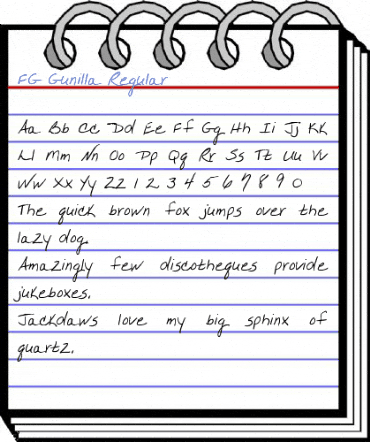 FG Gunilla Regular
Aa Bb Cc Dd Ee Ff Gg Hh Ii Jj Kk
Ll Mm Nn Oo Pp Qq Rr Ss Tt Uu Vv
Ww Xx Yy Zz 1 2 3 4 5 6 7 8 9 0
The quick brown fox jumps over the
lazy dog.
Amazingly few discotheques provide
jukeboxes.
Jackdaws love my big sphinx of
quartz.